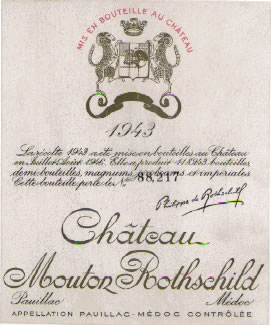 MIS EN BOUTEILLE AU CHÂTEAU
1943
La récolte 1943 a été mise en bouteilles au Château
en Juillet-Août 1946. Elle a produit bouteilles
demi bouteilles, magnums et impériales
Cette bouteille porte le N° 88,217
Philippe de Rothschild
Château
Mouton Rothschild
Pauillac Médoc
APPELLATION PAUILLAC-MÉDOC CONTRÔLÉE